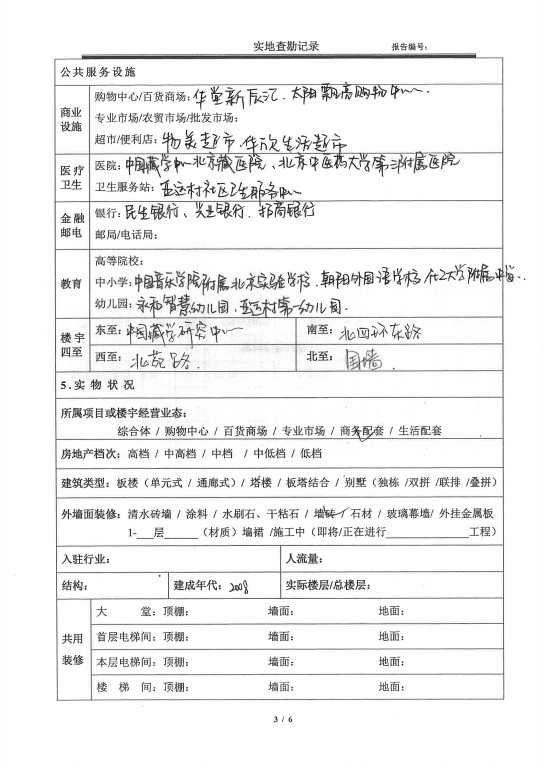 实地查勘记录 报告编号：
公共服务设施
商业设施
购物中心/百货商场：华堂新辰汇、太阳飘亮购物中心.
专业市场/农贸市场/批发市场：
超市/便利店：物美超市、华欣生活超市
医疗卫生
医院：中国藏学中心北京藏医院、北京中医药大学第三附属医院
卫生服务站：亚运村社区卫生服务中心
金融邮电
银行：民生银行、兴业银行、招商银行
邮局/电话局：
教育
高等院校：
中小学：中国音乐学院附属北京实验学校、朝阳外国语学校、化工大学附属中学..
幼儿园：永和智慧幼儿园、亚运村第一幼儿园.
楼宇四至
东至：中国藏学研究中心 南至：北四环东路
西至：北苑路. 北至：围墙.
5.实物状况
所属项目或楼宇经营业态：
综合体 / 购物中心 / 百货商场 / 专业市场 / 商务配套 / 生活配套
房地产档次：高档 / 中高档 / 中档 / 中低档 / 低档
建筑类型：板楼（单元式 / 通廊式）/ 塔楼 / 板塔结合 / 别墅（独栋 /双拼 /联排 /叠拼）
外墙面装修：清水砖墙 / 涂料 / 水刷石、干粘石 / 墙砖 / 石材 / 玻璃幕墙/ 外挂金属板
1-___层______（材质）墙裙 /施工中（即将/正在进行______________工程）
入驻行业： 人流量：
结构： 建成年代：2008 实际楼层/总楼层：
共用装修
大 堂：顶棚： 墙面： 地面：
首层电梯间：顶棚： 墙面： 地面：
本层电梯间：顶棚： 墙面： 地面：
楼 梯 间：顶棚： 墙面： 地面：
3 / 6